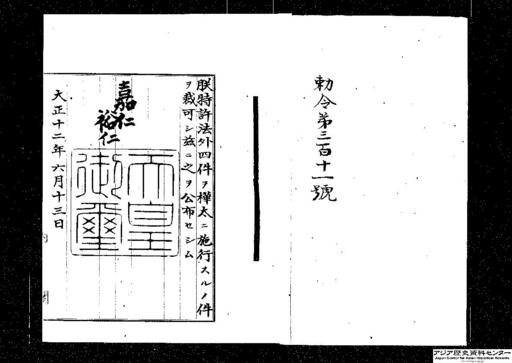 勅令第三百十一號
朕特許法外四件ヲ樺太ニ施行スルノ件
ヲ裁可シ茲ニ之ヲ公布セシム
嘉仁
裕仁
天皇御璽
大正十二年六月十三日
内閣
アジア歴史資料センター
Japan Center for Asian Historical Records